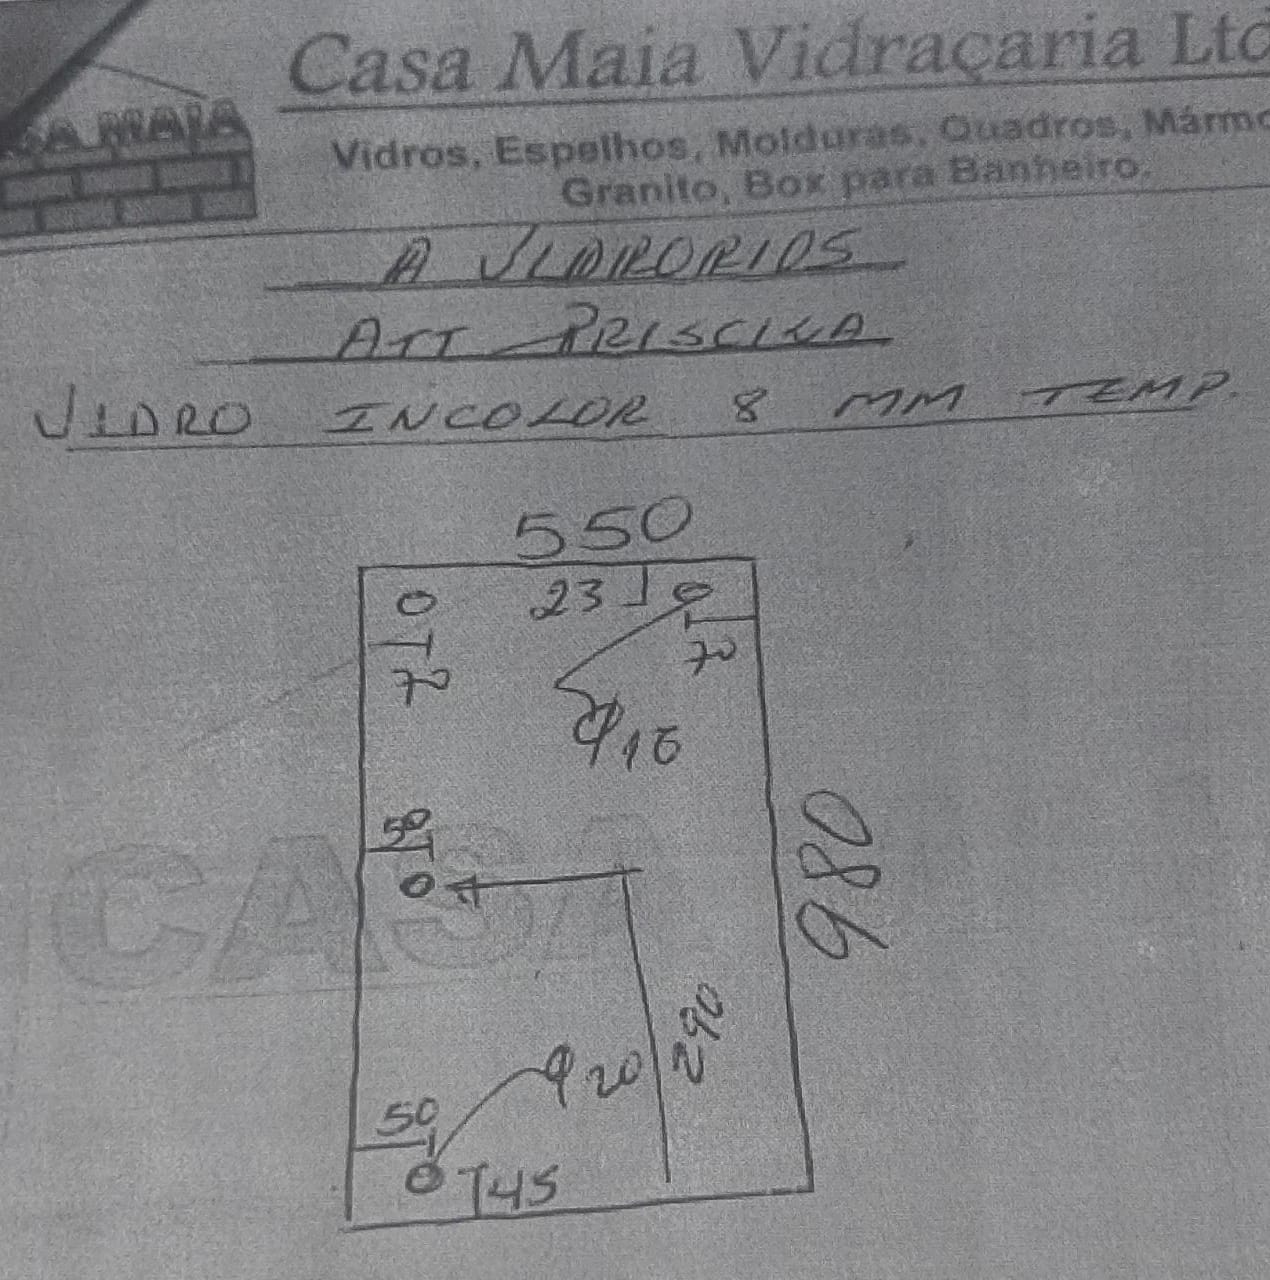 Casa Maia Vidraçaria Ltd
CASA MAIA
Vidros, Espelhos, Molduras, Quadros, Mármo
Granito, Box para Banheiro.
A VIDRORIOS
ATT PRISCILA
VIDRO INCOLOR 8 MM TEMP.
550
23
70
70
φ16
50
980
290
φ20
50
45
CASA